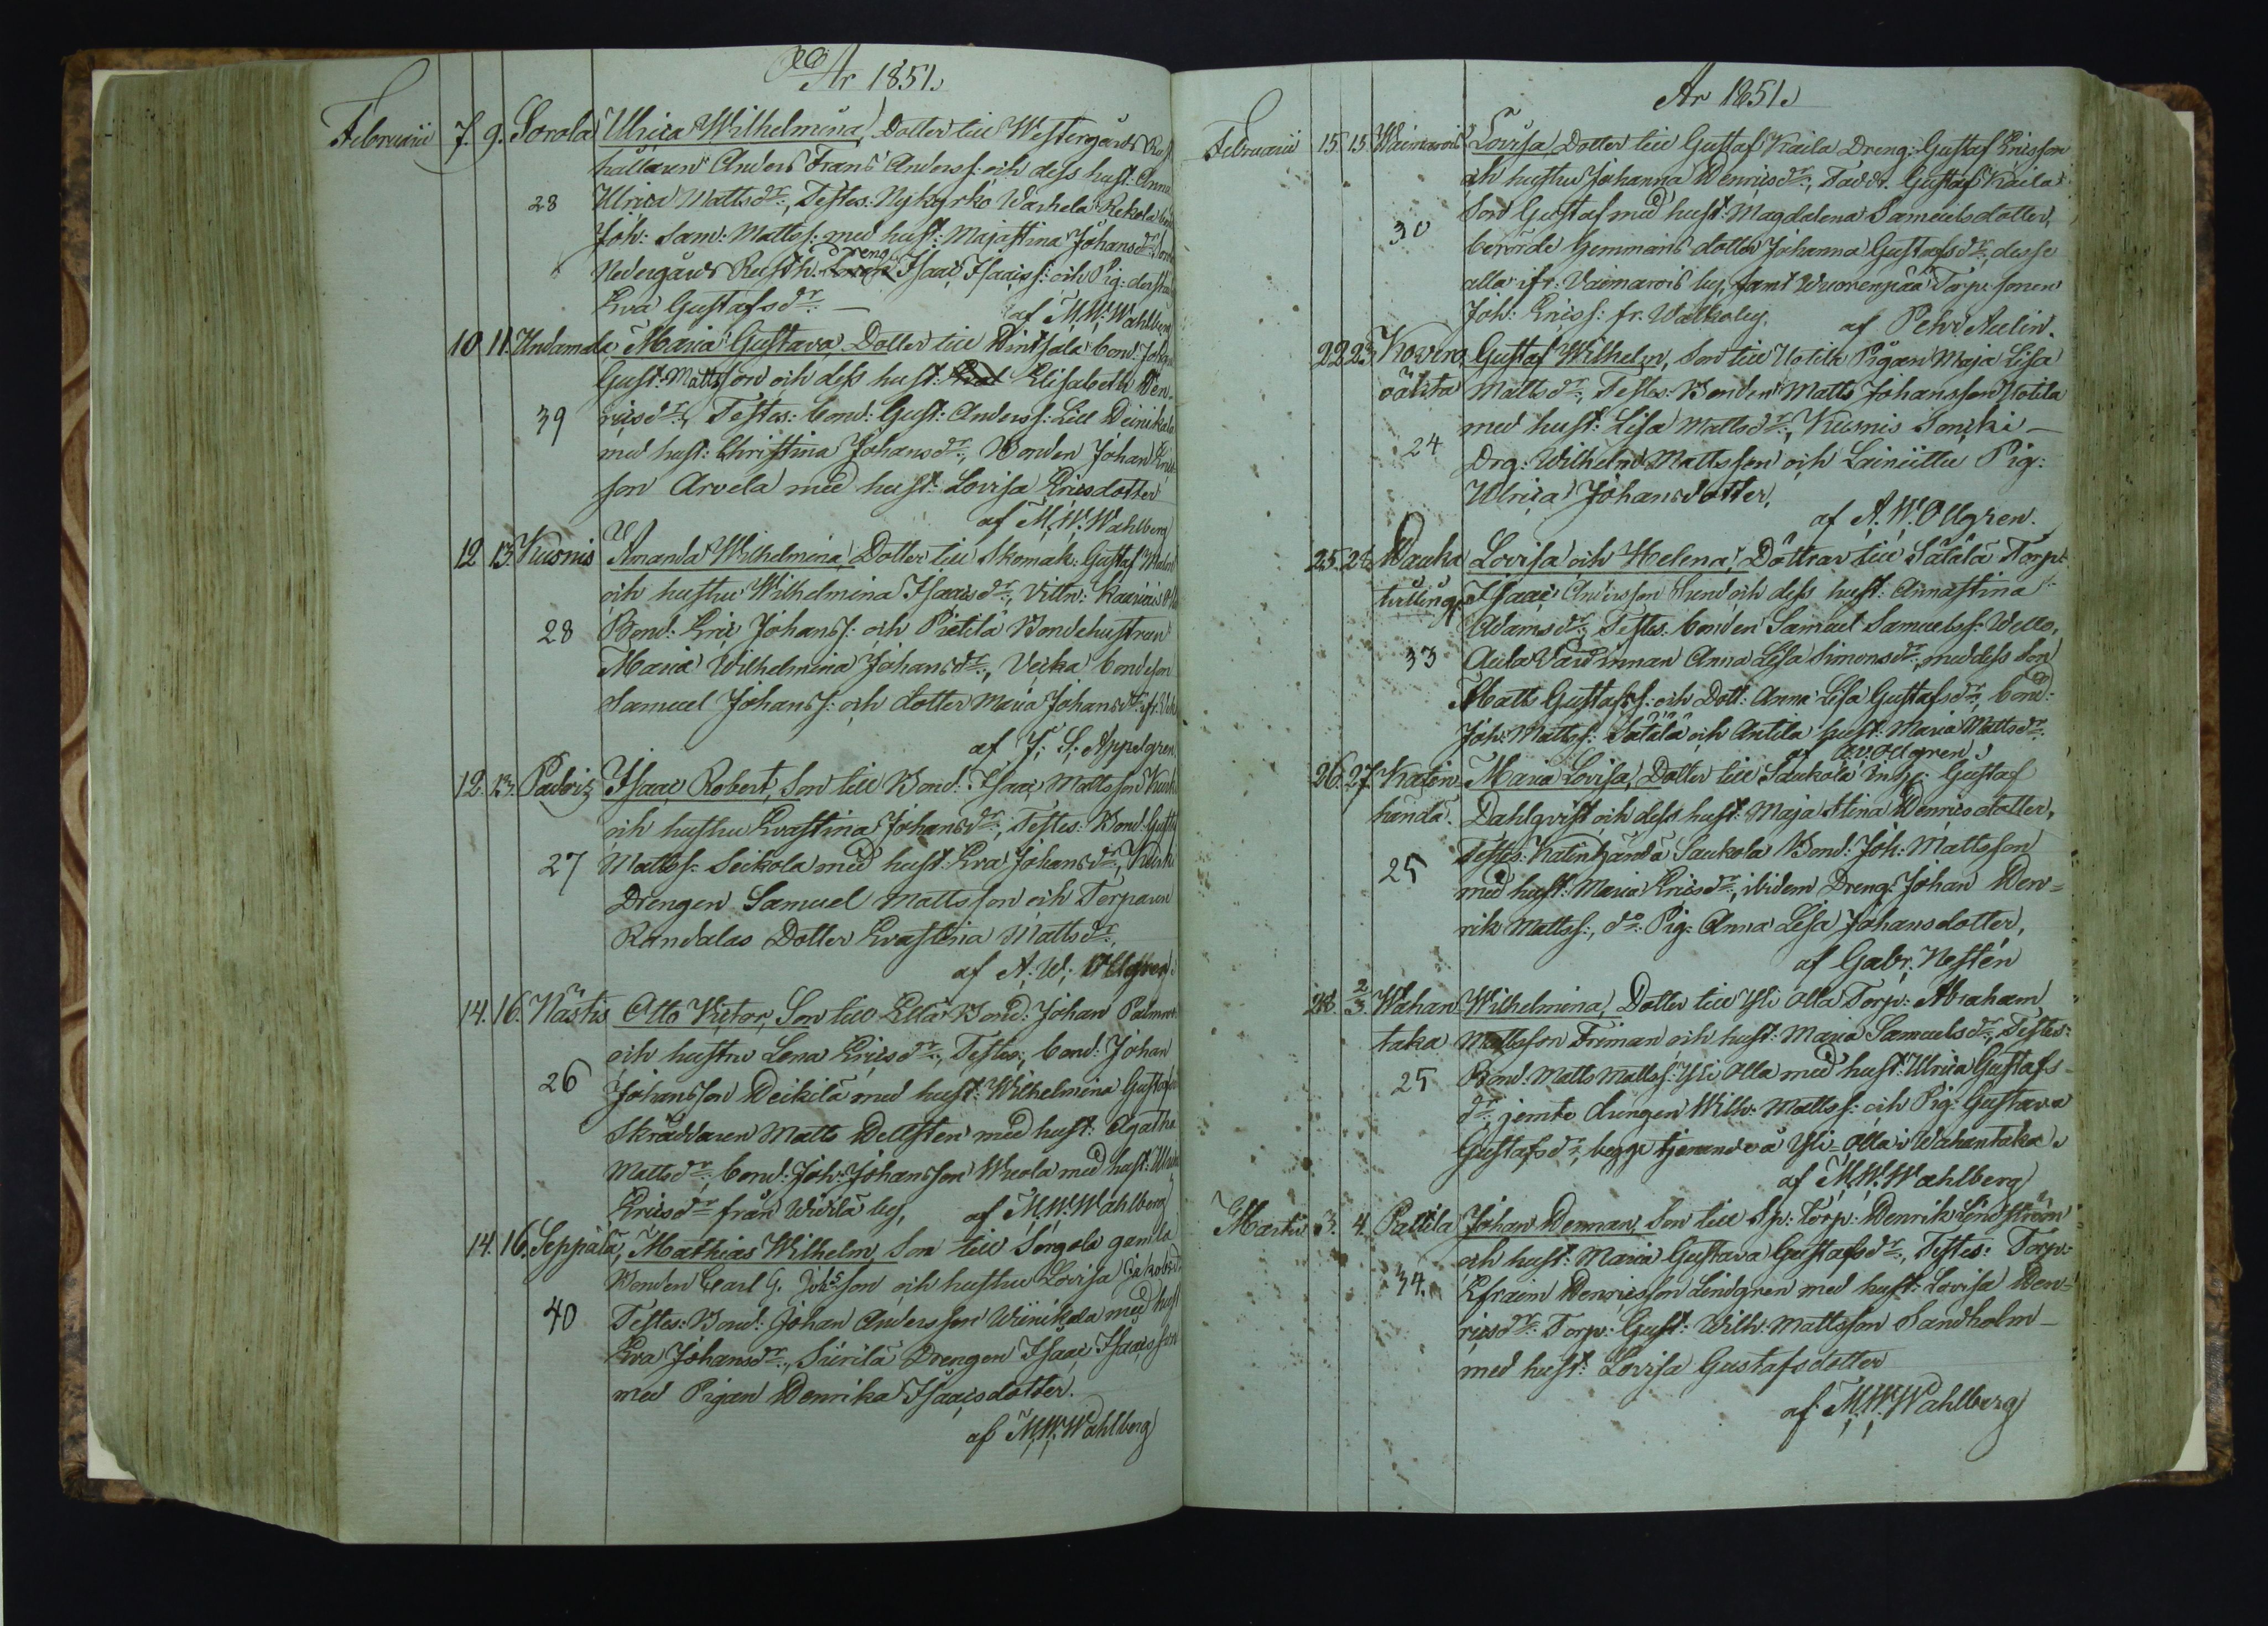 År 1851.
Februarii 7. 9. Sorola Ulrica Wilhelmina, Dotter till Westergårds Rust
hållaren Anders Frans Anderss: och dess hust: Anna
28 Ulrica Mattsdr:, Testes: Nykyrko Warhela Rekola
Joh: Sam: Mattss: med hust: Majastina Johansdr:
Nedergårds Rusth: dreng Isaac Isaacss: och Pig:
Eva Gustafsdr: —
af M. W. Wahlberg
10 11. Undamale Maria Gustava, Dotter till bond:
Gust: Mattsson och dess hust: Elisabeth Hen-
39 ricsdr:, Testes: bond: Gust: Anderss: Lill Heinikala
med hust: Christina Johansdr:, Bonden Johan
son Arvela med hust: Lovisa Ericsdotter
af M. W. Wahlberg
12 13. Kusnis Amanda Wilhelmina, Dotter till Skomak: Gustaf
och hustru Wilhelmina Isaacsdr:, Vittn:
28 Bond: Eric Johanss: och Pietilä Bondehustrun
Maria Wilhelmina Johansdr:, Vecka bondeson
Samuel Johanss: och dotter Maria Johansdr:
af J. S. Appelgren.
12. 13. Padoiz Isaac Robert, Son till Bond: Isaac Mattsson
och hustru Evastina Johansdr:, Testes: Bond:
27 Mattss: Seikola med hust: Eva Johansdr:, Kurki
Drengen Samuel Mattsson och Torparen
Randalas Dotter Evastina Mattsdr:,
af A. W. Ollgren.
14. 16. Nästis Otto Victor, Son till Bond: Johan
och hustru Lena Ericsdr:, Testes:, bond: Johan
26 Johansson Heikilä med hust: Wilhelmina
Skräddaren Matts Hellsten med hust: Agatha
Mattsdr:, bond: Joh: Johansson med hust:
Ericsdr från by, af M. W. Wahlberg
14. 16. Seppälä, Mathias Wilhelm, Son till Sorgola gamla
Bonden Carl G. Johsson och hustru Lovisa
40 Testes: Bond: Johan Andersson Wiinikala med hust
Eva Johansdr:, Siirilä Drengen Isaac Isaacsson
med Pigan Henrika Isaacsdotter.
af M. W. Wahlberg
År 1851.
Februarii 15 15 Waimarois Lovisa, Dotter till Gustaf Kaila Dreng: Gustaf Ericsson
och hustru Johanna Henricsdr:, Faddr. Gustaf Kaila
Son Gustaf med hust: Magdalena Samuelsdotter,
30 berörde hemmans dotter Johanna Gustafsdr:, desse
alla ifr. Vaimarois by, samt Wuorenpää Torp: sonen
Joh: Ericss: fr. Walko by.
af Pehr Aulin.
22 23 Koveroválita Gustaf Wilhelm, Son till Uotila Pigan Maja Lisa
Mattsdr:, Testes: Bonden Matts Johansson Uotila
med hust: Lisa Mattsdr:, Kusnis Sonki —
24 Drg: Wilhelm Mattsson och Pig:
Ulrica Johansdotter.
af A. W. Ollgren.
25. 28 Hauka Lovisa och Helena, Döttrar till Sätälä Torp:
tvilling: Isaac Andersson Lund och dess hust: Annastina
Adamsdr:, Testes. bonden Samuel Samuelss: Wello,
33 Aula Värdinnan Anna Lisa Simonsdr:, med dess Son
Matts Gustafss: och Dott: Anna Lisa Gustafsdr:, bond:
Joh: Mattss: Sätälä och Antila hust: Maria Mattsdr:
af A. W. Ollgren.
26. 27. Katin- Maria Lovisa, Dotter till Saukola Inh: Gustaf
händä. Dahlqvist och dess hust: Maja Stina Henricsdotter,
Testes: Katinhändä Saukola Bond: Joh: Mattsson
25 med hust: Maria Ericsdr:, ibidem Dreng: Johan Hen=
rik Mattss:, do: Pig: Anna Lisa Johansdotter,
af Gabr. Nestén
28. 2/3. Wahan- Wilhelmina, Dotter till Yli Olla Torp: Abraham
taka Mattsson Friman och hust: Maria Samuelsdr:, Testes:
25 Bond: Matts Mattss: Yli Olla med hust: Ulrica Gustafs
dr:, jemte drengen Wilh: Mattss: och Pig: Gustava
Gustafsdr:, begge tjenande å Yli-Olla i Wahantaka.
af M. W. Wahlberg
Martii 3. 4. Pattila Johan Herman, Son till Sp: Torp: Henrik Lindström
och hust: Maria Gustava Gustafsdr:, Testes: Torp:
34. Efraim Henricsson Lindgren med hust: Lovisa Hen=
ricsdr: Torp: Gust: Wilh: Mattsson Sandholm —
med hust: Lovisa Gustafsdotter
af M. W. Wahlberg